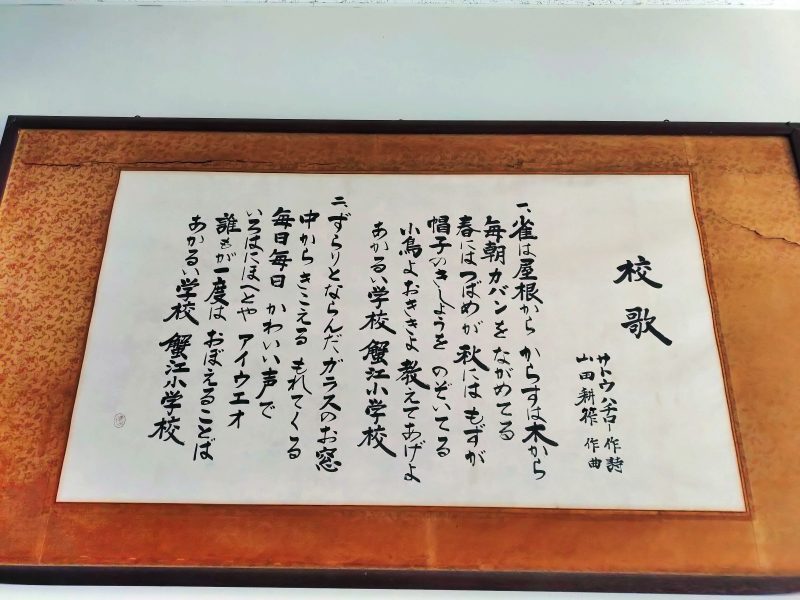 校歌
サトウハチロー作詩
山田耕筰作曲
一、雀は屋根から からすは木から
毎朝カバンを ながめてる
春にはつばめが 秋にはもずが
帽子のきしょうを のぞいてる
小鳥よおききよ 教えてあげよ
あかるい学校 蟹江小学校
二、ずらりとならんだ ガラスのお窓
中からきこえる もれてくる
毎日毎日 かわいい声で
いろはにほへとや アイウエオ
誰もが一度は おぼえることば
あかるい学校 蟹江小学校